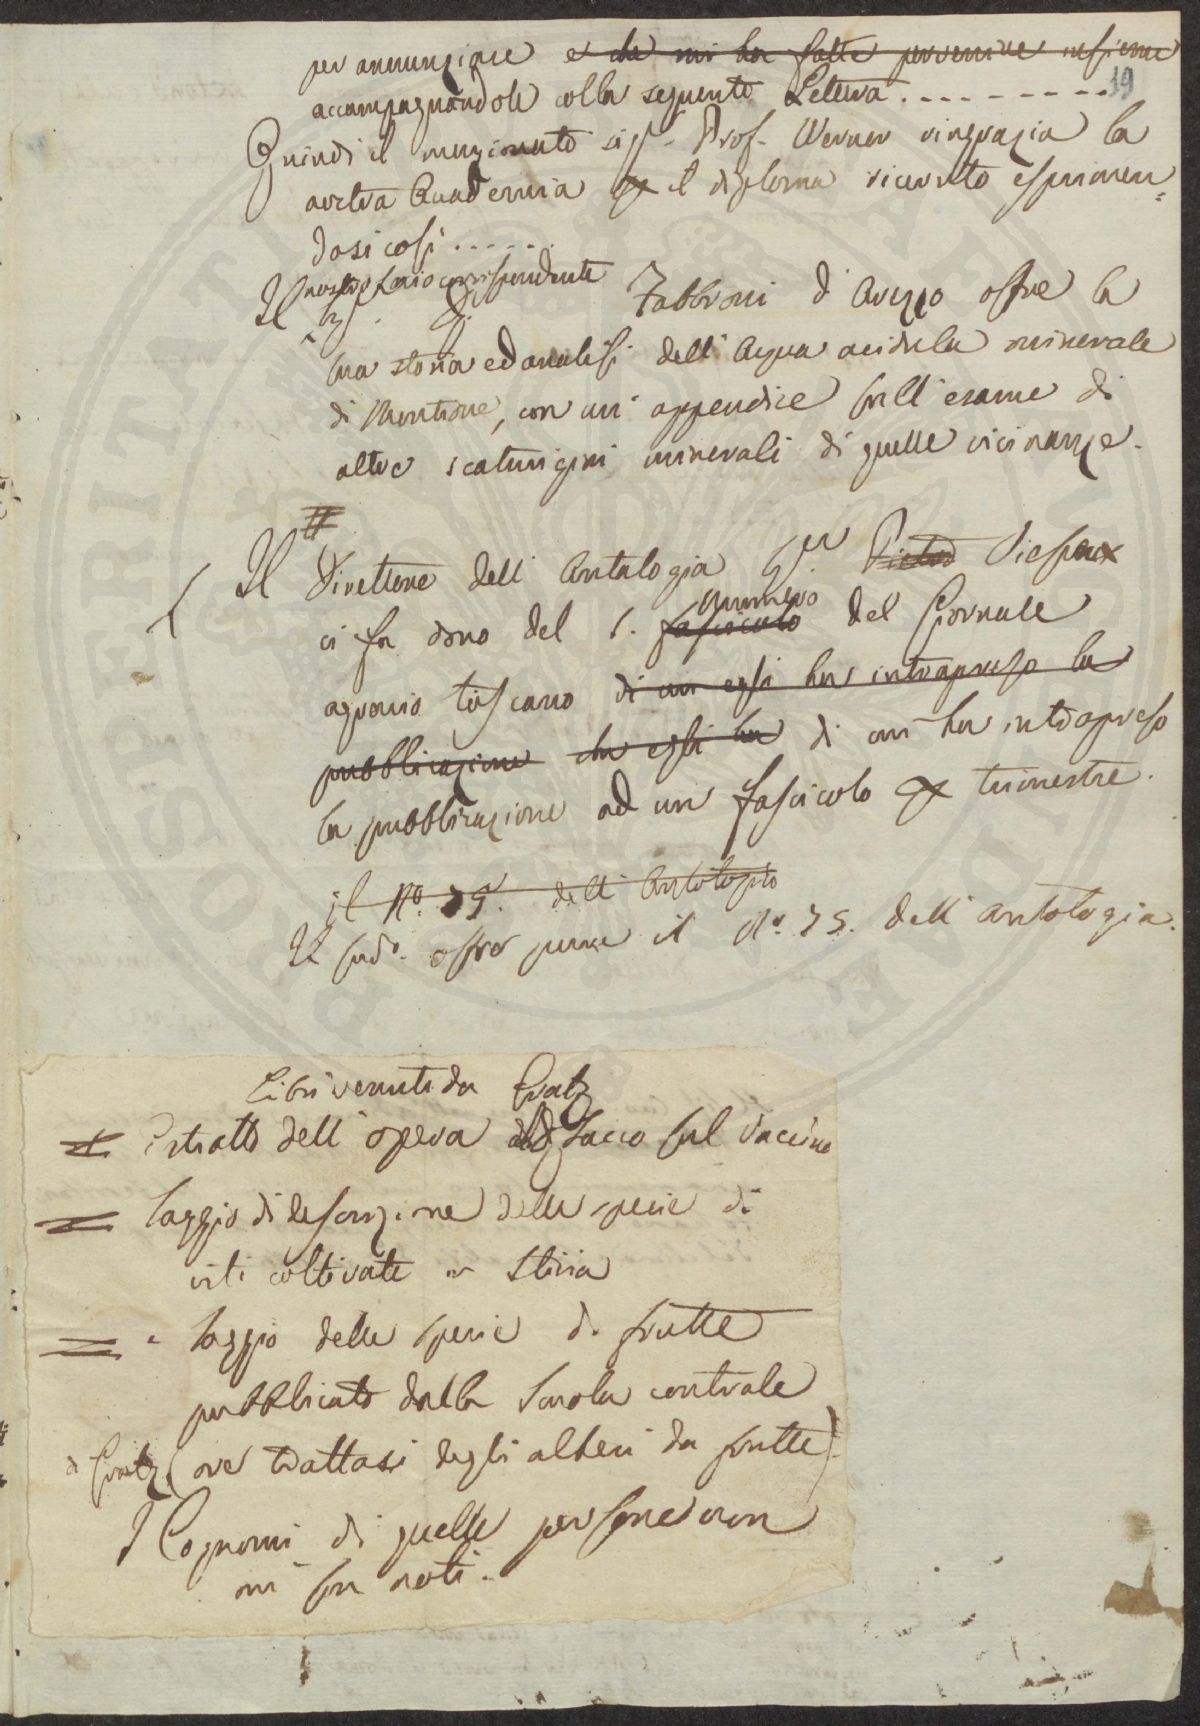 per annunziare e che mi ha fatte pervenire insieme
accompagnandole colla seguente Lettera . . . . . . . . . 19
Quindi il menzionato sigr. Prof. Werner ringrazia la
nostra Accademia pr il diploma ricevuto esprimen=
dosi così . . . . . .
nostro Socio corrispondente
Il Fabbroni d'Arezzo offre la
sua storia ed analisi dell'Acqua acidula minerale
di Montione, con un'appendice sull'esame di
altre scaturigini minerali di quelle vicinanze.
Il Direttore dell'Antologia Sigr. Pietro Viesseux
numero
ci fa dono del 1. fascicolo del Giornale
agrario toscano di cui egli ha intrapreso la
pubblicazione che egli ha di cui ha intrapreso
la pubblicazione ad un fascicolo pr trimestre.
il No. 75. dell'Antologia
Il sudo. offre pure il No. 75. dell'Antologia.
Libri venuti da Gratz
Estratto dell'opera del Sacco sul Vaccino
Saggio di descrizione delle specie di
viti coltivate in Stiria
Saggio delle specie di frutte
pubblicato dalla Scuola centrale
di Gratz (ove trattasi degli alberi da frutte)
I Cognomi di quelle persone non
mi son noti.
PROSPERITATI